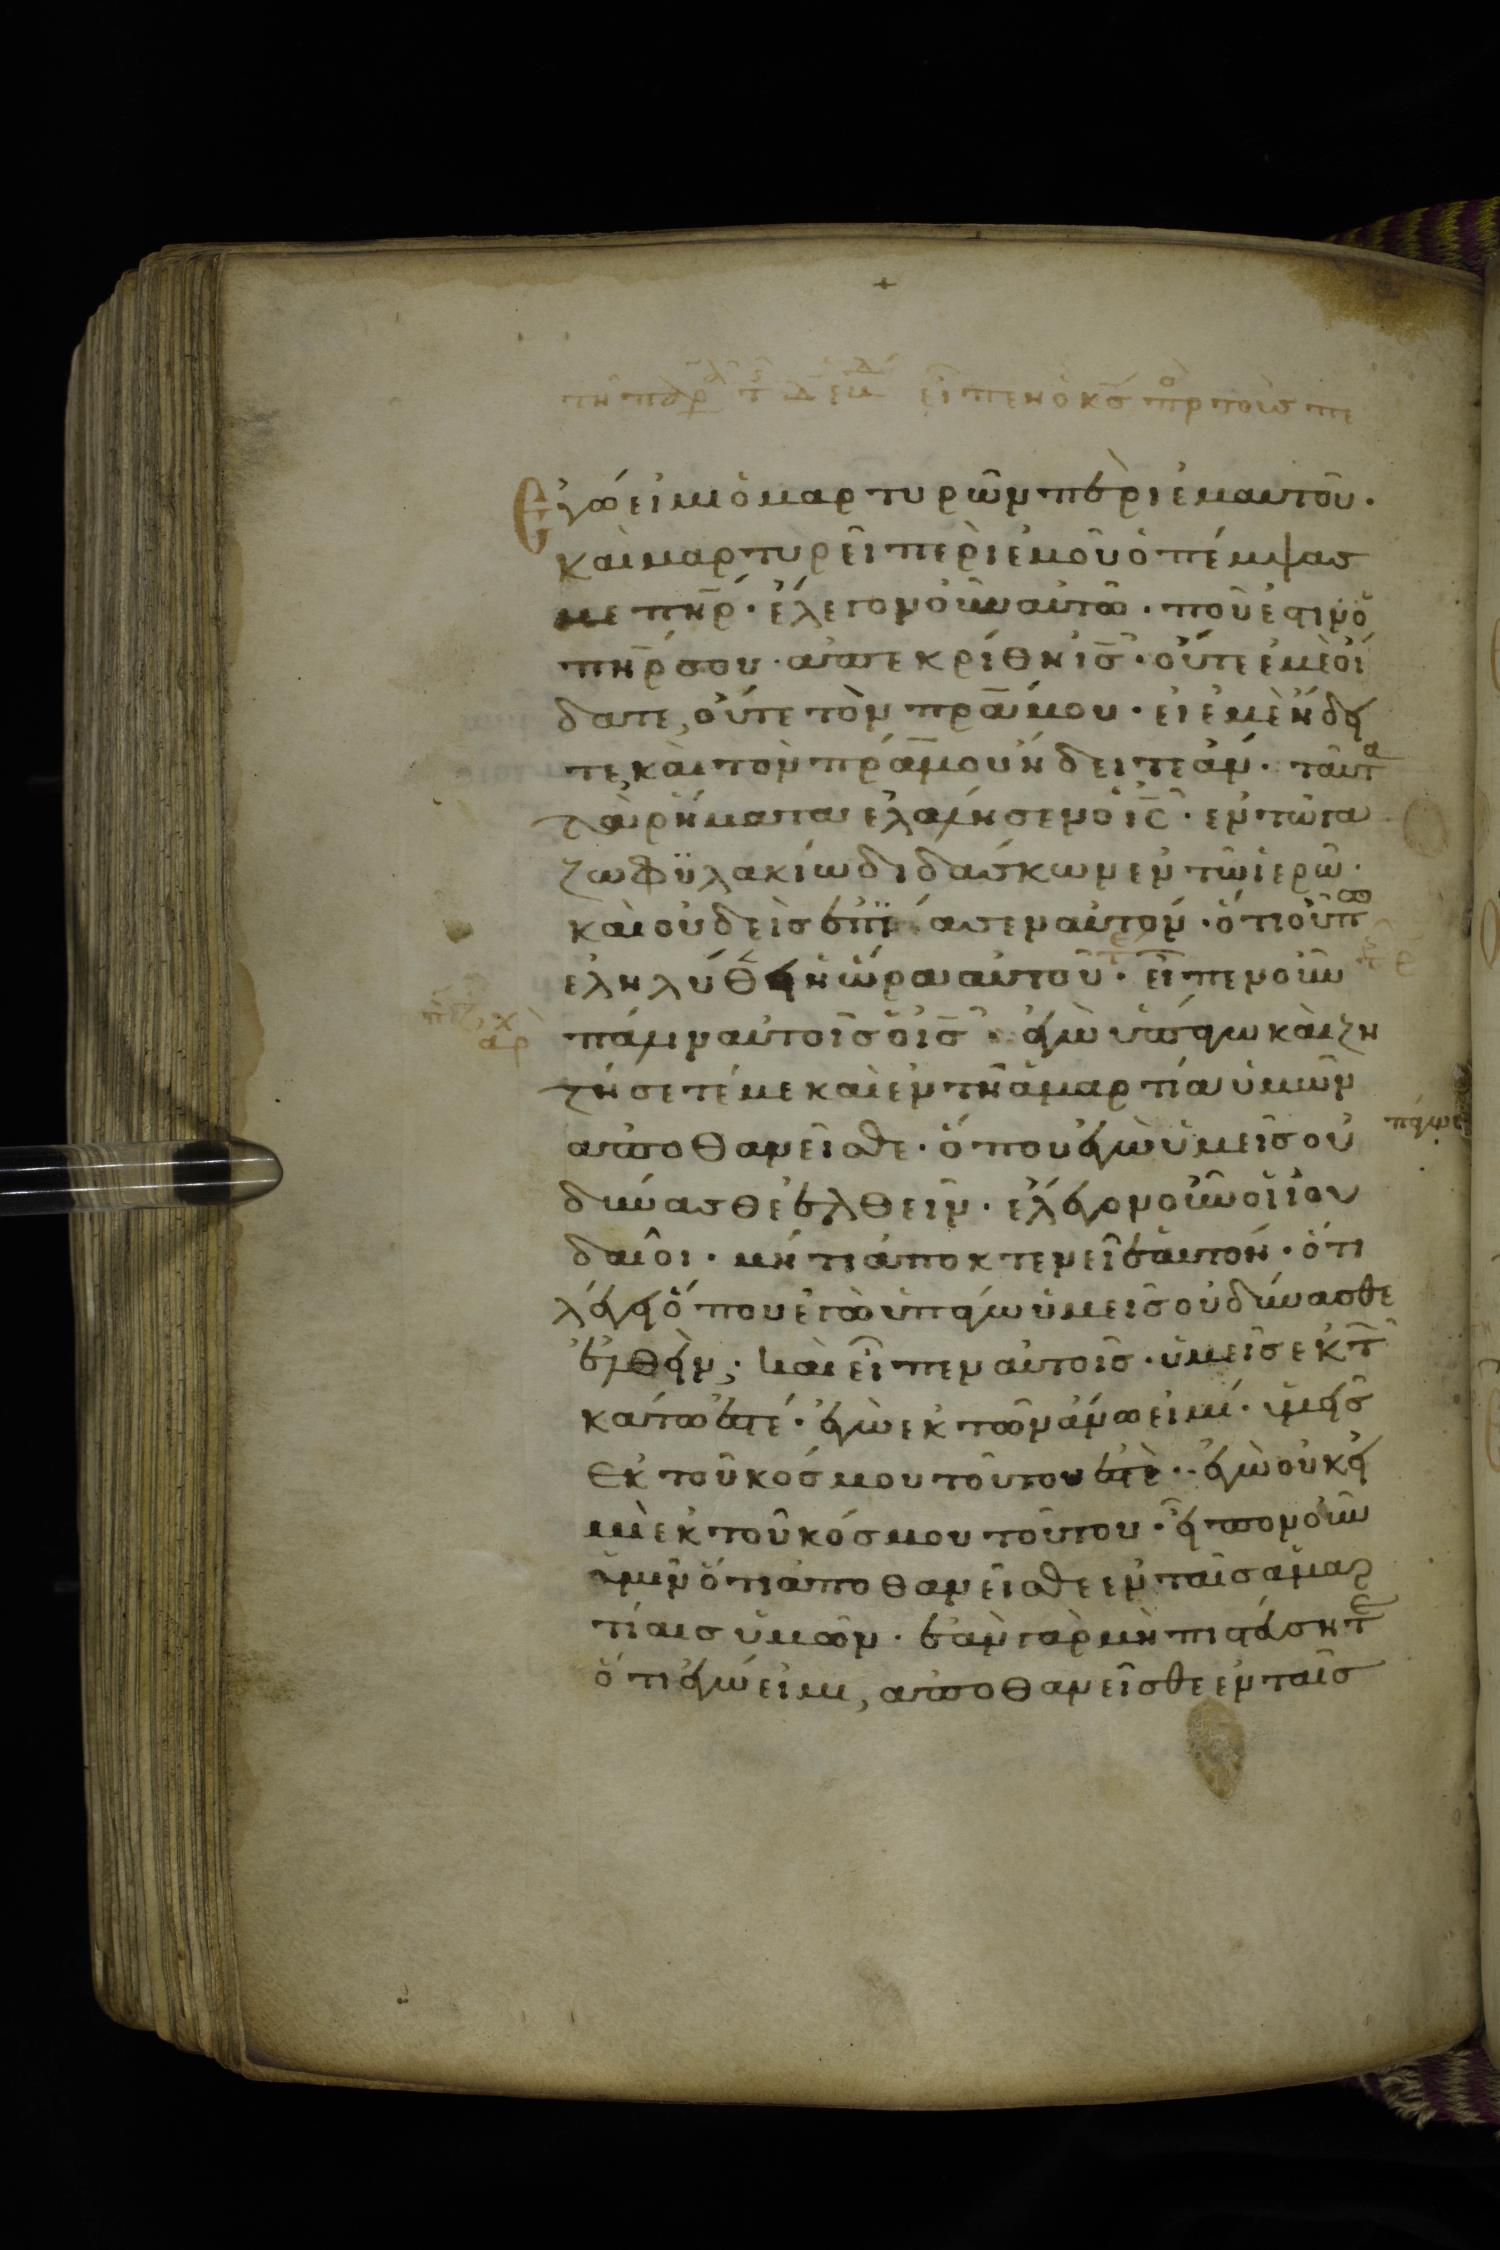 εἶπεν ὁ κς πρ τοὺσ πε
Ἐγώ εἰμι ὁ μαρτυρῶν περὶ ἐμαυτοῦ·
καὶ μαρτυρεῖ περὶ ἐμοῦ ὁ πέμψασ
με πηρ· ἔλεγον οὖν αὐτῶ· ποῦ ἐστιν ὁ
πηρ σου· ἀπεκρίθη ισ· οὔτε ἐμὲ οἴ
δατε, οὔτε τὸν πρα μου· εἰ ἐμὲ ἤδει
τε, καὶ τὸν πρα μου ἤδειτε ἄν· ταῦτα
τὰ ῥήματα ἐλάλησεν ὁ ις· ἐν τῶ γα
ζωφϋλακίω διδάσκων ἐν τῶ ἱερῶ·
καὶ οὐδεὶσ ἐπίασεν αὐτόν· ὅτι οὔπω
ἐληλύθει ἡ ὥρα αὐτοῦ· εἶπεν οὖν
πάλιν αὐτοῖσ ὁ ισ· ἐγὼ ὑπάγω καὶ ζη
τήσετέ με καὶ ἐν τῆ ἁμαρτία ὑμῶν
ἀποθανεῖσθε· ὅπου ἐγὼ ὑμεῖσ οὐ
δύνασθε ἐλθεῖν· ἔλεγον οὖν οἱ ἰου
δαῖοι· μήτι ἀποκτενεῖ ἑαυτόν· ὅτι
λέγει ὅπου ἐγὼ ὑπάγω ὑμεῖσ οὐ δύνασθε
ἐλθεῖν; καὶ εἶπεν αὐτοῖσ· ὑμεῖσ ἐκ τ
κάτω ἐστέ· ἐγὼ ἐκ τῶν ἄνω εἰμί· ὑμεῖσ
ἐκ τοῦ κόσμου τούτου ἐστέ· ἐγὼ οὐκ εἰ
μὶ ἐκ τοῦ κόσμου τούτου· εἶπον οὖν
ὑμῖν ὅτι ἀποθανεῖσθε ἐν ταῖσ ἁμαρ
τίαισ ὑμῶν· ἐὰν γὰρ μὴ πιστεύσητε
ὅτι ἐγώ εἰμι, ἀποθανεῖσθε ἐν ταῖσ